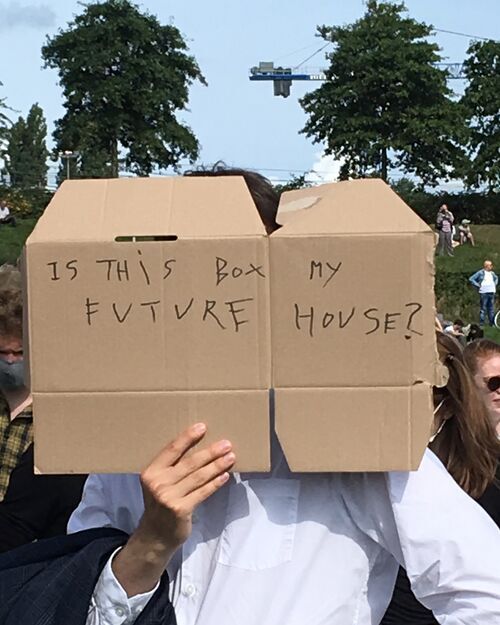 IS THiS BOX MY
FUTURE HOUSE?